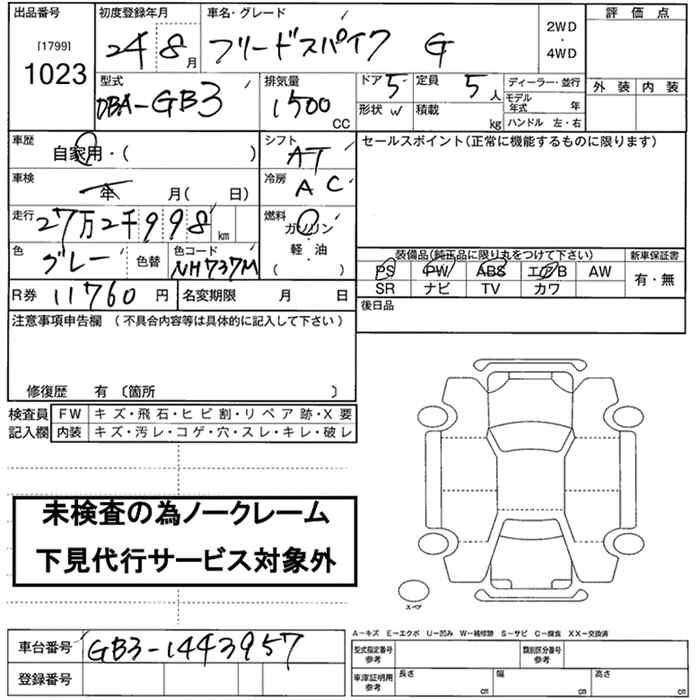 出品番号 初度登録年月 車名・グレード 評価点
[1799] 2WD
1023 24 8月 フリードスパイク G ・
4WD
型式 排気量 ドア 5 定員 5人 ディーラー・並行 外装 内装
DBA-GB3 1500 CC 形状 W 積載 kg モデル年式 年
ハンドル 左・右
車歴 シフト セールスポイント(正常に機能するものに限ります)
自家用・( ) AT
車検 年 月( 日) 冷房 AC
走行 27万2千998km 燃料 ガソリン
軽・油
( )
色 グレー 色替 色コード NH737M 装備品(純正品に限り丸をつけて下さい) 新車保証書
PS PW ABS エアB AW 有・無
SR ナビ TV カワ
R券 11760円 名変期限 月 日 後日品
注意事項申告欄 (不具合内容等は具体的に記入して下さい)
修復歴 有 〔箇所 〕
検査員 FW キズ・飛石・ヒビ割・リペア跡・X要
記入欄 内装 キズ・汚レ・コゲ・穴・スレ・キレ・破レ
未検査の為ノークレーム
下見代行サービス対象外
スペア
A−キズ E−エクボ U−凹み W−補修跡 S−サビ C−腐食 XX−交換済
車台番号 GB3-1443957 型式指定番号 参考 類別区分番号 参考
登録番号 車庫証明用 参考 長さ cm 幅 cm 高さ cm